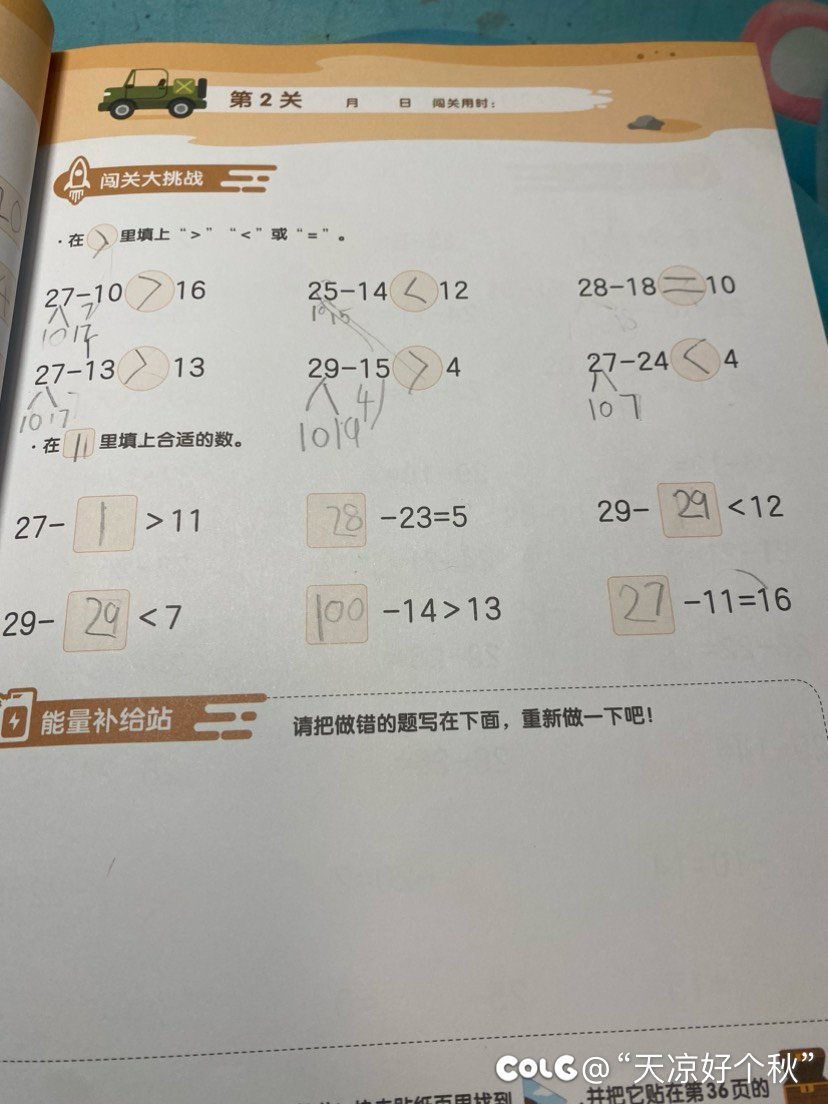 第2关 月 日 闯关用时：
闯关大挑战
·在 > 里填上“>”“<”或“=”。
27-10 > 16 25-14 < 12 28-18 = 10
7
10 17 10 15
27-13 > 13 29-15 > 4 27-24 < 4
10 17 10 19 4 10 7
·在 11 里填上合适的数。
27- 1 >11 28 -23=5 29- 29 <12
29- 29 <7 100 -14>13 27 -11=16
能量补给站 请把做错的题写在下面，重新做一下吧！
COLG @“天凉好个秋”
贴纸页里找到 ,并把它贴在第36页的